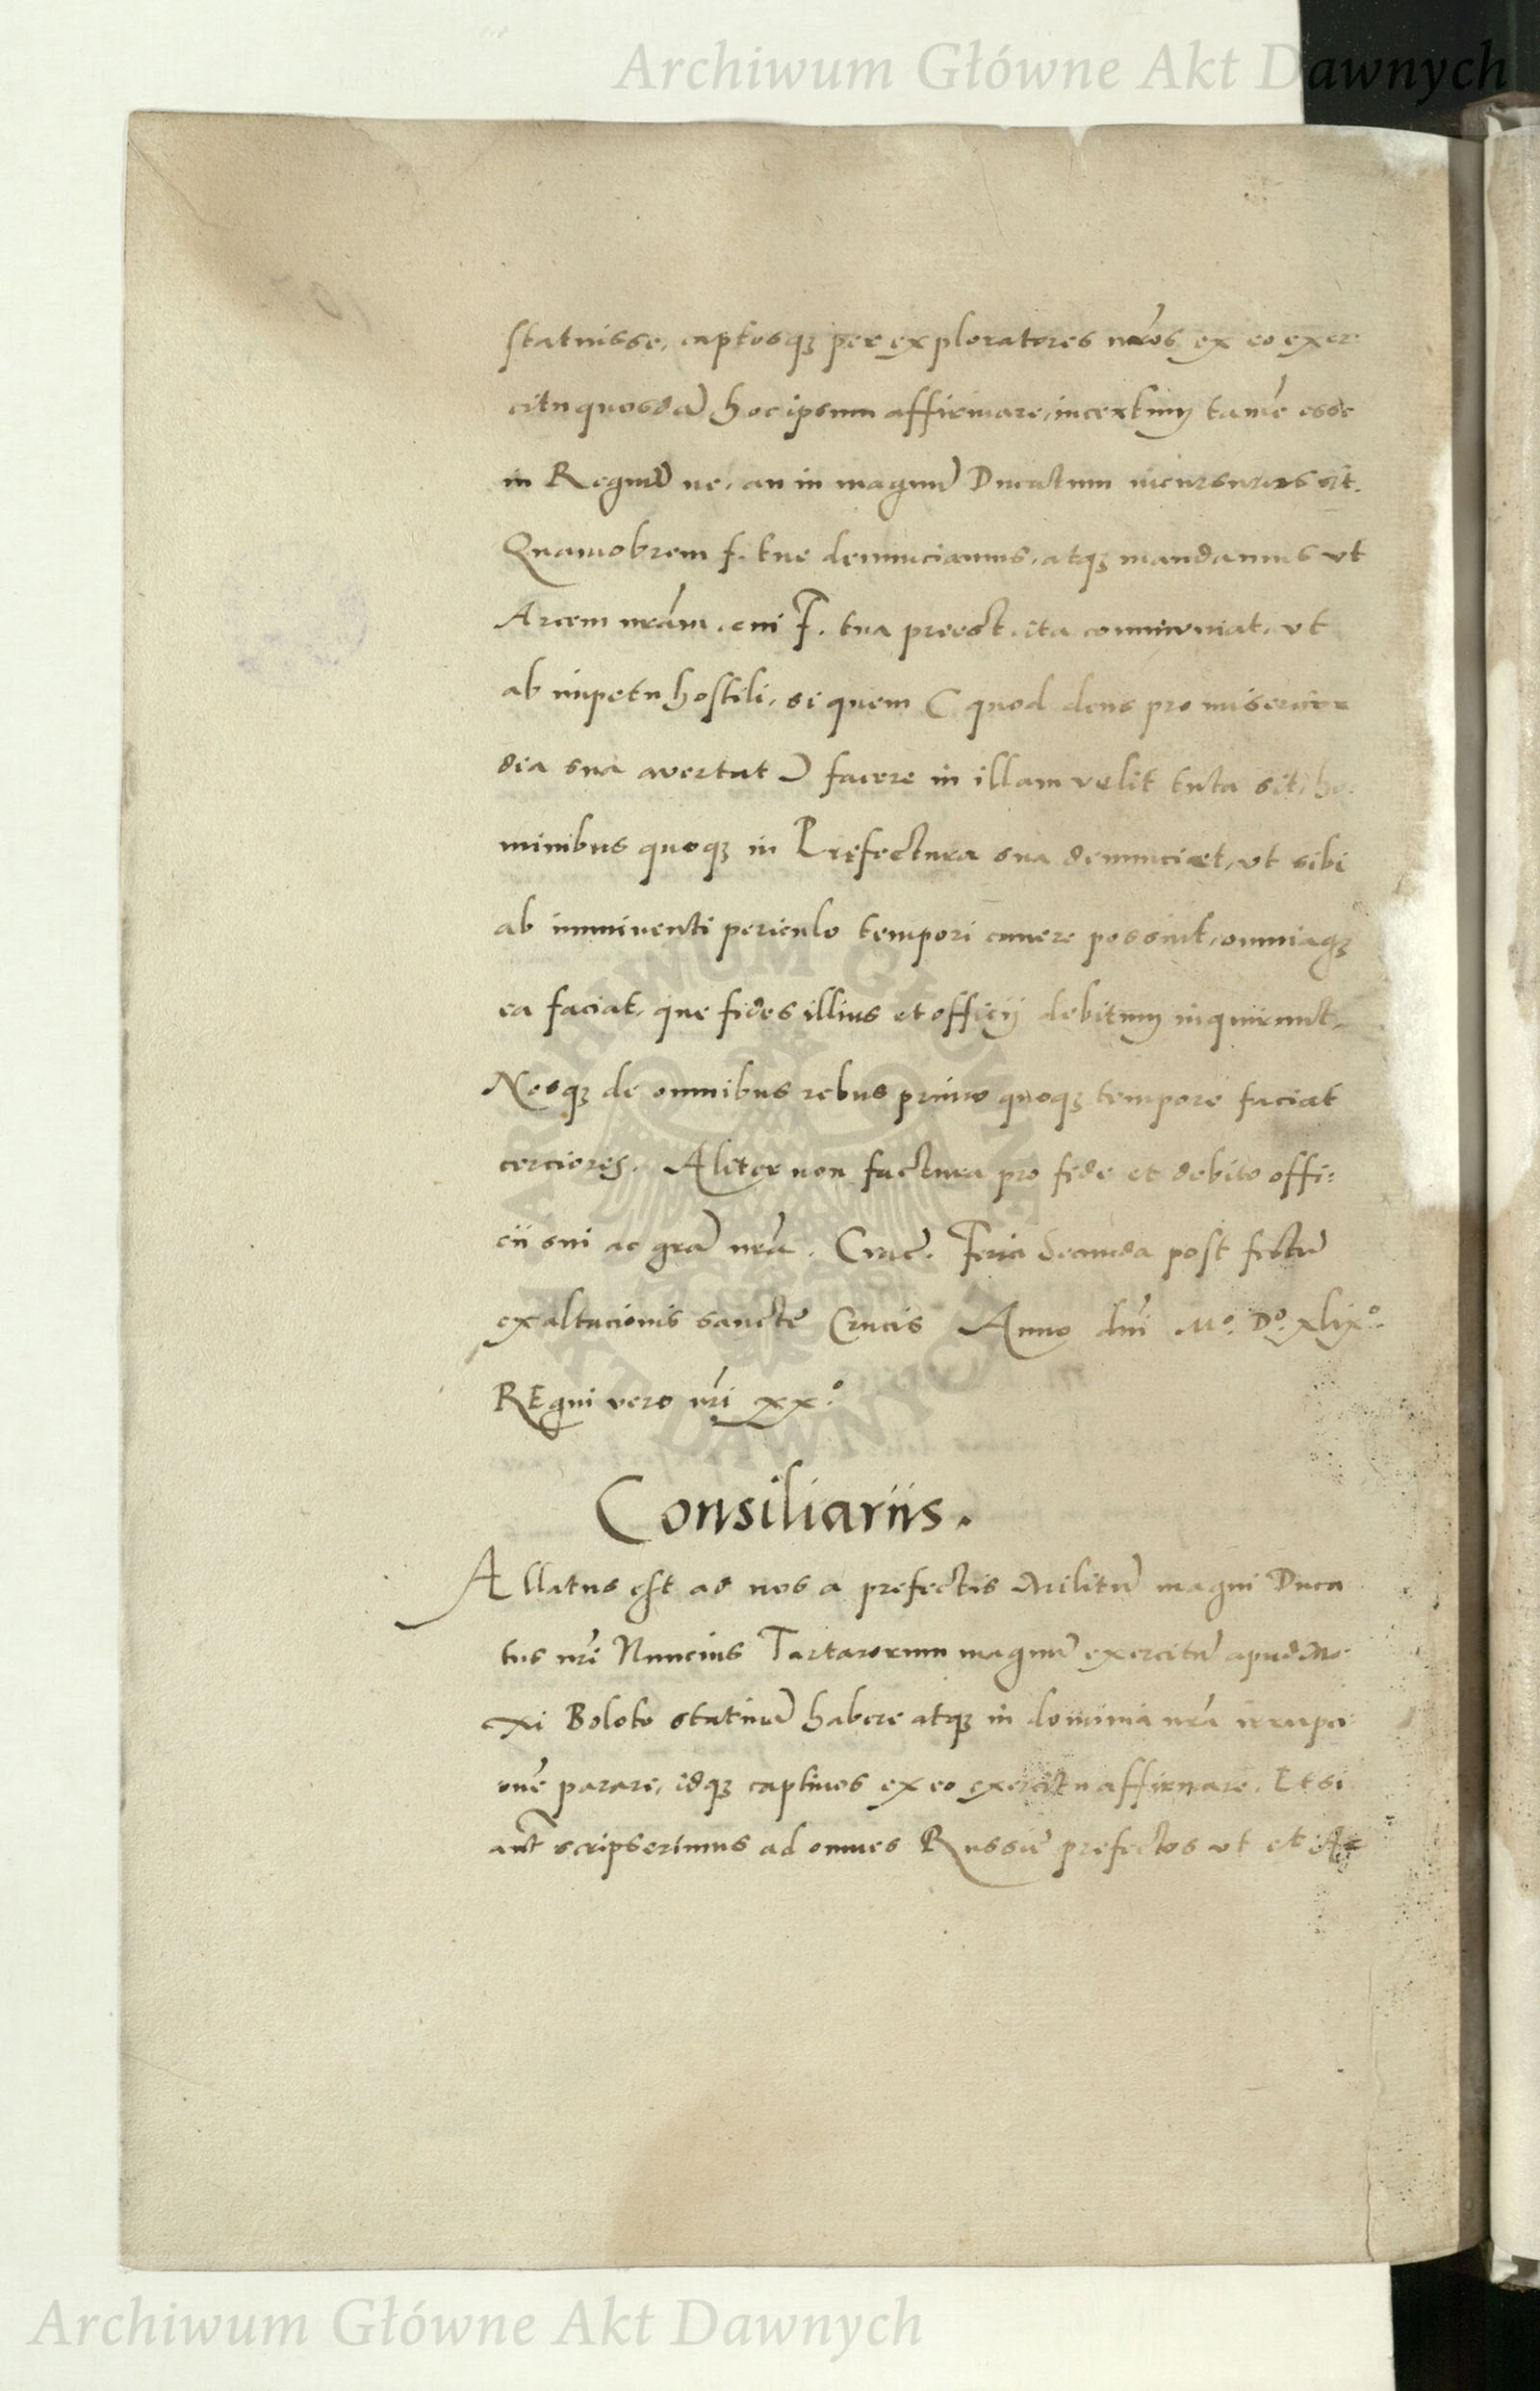 Archiwum Główne Akt Dawnych
statuisse, captosqȝ per exploratores nr̃os ex eo exer
citu quosdã hoc ipsum affirmare, incertum tamẽ esse
in Regnũ ne, an in magnũ Ducatum incursurus sit.
Quamobrem f. tue denunciamus, atqȝ mandamus vt
Arcem nr̃am, cui F. tua preest, ita communiat, vt
ab impetu hostili, si quem ( quod deus pro misericor
dia sua avertat ) facere in illam velit tuta sit, ho
minibus quoqȝ in Pręfectura sua denunciet, vt sibi
ab imminenti periculo tempori cavere possint, omniaqȝ
ea faciat, que fides illius et officij debitum inquirunt.
Nosqȝ de omnibus rebus primo quoqȝ tempore faciat
cerciores. Aliter non factura pro fide et debito offi:
cii sui ac grã nr̃a. Crac̃. Feria Secunda post festũ
exaltacionis sancte Crucis Anno dñi Mº. Dº. xlixº.
REgni vero nr̃i xxº.
Consiliariis.
Allatus est ad nos a prefectis Militũ magni Duca
tus nr̃i Nuncius Tartarorum magnũ exercitũ apud Mo
xi Boloto stativã habere atqȝ in dominia nr̃a irrupci
onẽ parare, idqȝ captivos ex eo exercitu affirmare. Etsi
aut̃ scripserimus ad omnes Russie prefectos vt et Ar
ARCHIWUM GŁÓWNE
AKT DAWNYCH
Archiwum Główne Akt Dawnych